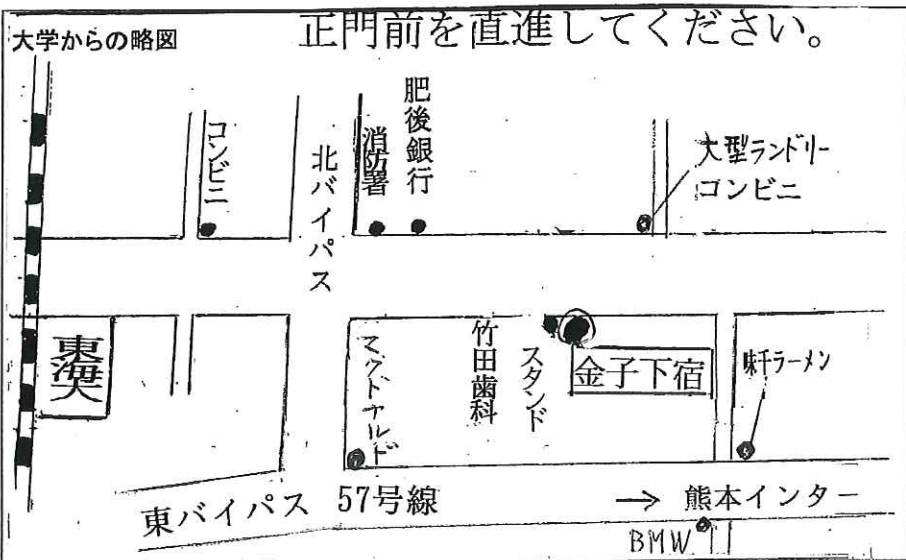 大学からの略図
正門前を直進してください。
コンビニ
北バイパス
消防署
肥後銀行
大型ランドリー
コンビニ
東海大
マクドナルド
竹田歯科
スタンド
金子下宿
味千ラーメン
東バイパス 57号線 → 熊本インター
BMW